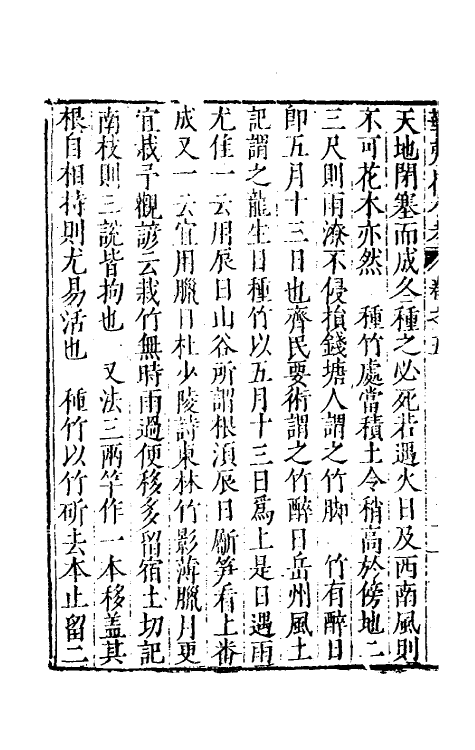 華夷花木考 卷之五
天地閉塞而成冬種之必死若遇火日及西南風則
不可花木亦然　種竹處當積土令稍高於傍地二
三尺則雨潦不侵損錢塘人謂之竹脚　竹有醉日
即五月十三日也齊民要術謂之竹醉日岳州風土
記謂之龍生日種竹以五月十三日爲上是日遇雨
尤佳一云用辰日山谷所謂根須辰日斸笋看上番
成又一云宜用臘日杜少陵詩東林竹影薄臘月更
宜栽予觀諺云栽竹無時雨過便移多留宿土切記
南枝則三說皆拘也　又法三兩竿作一本移盖其
根自相持則尤易活也　種竹以竹斫去本止留二